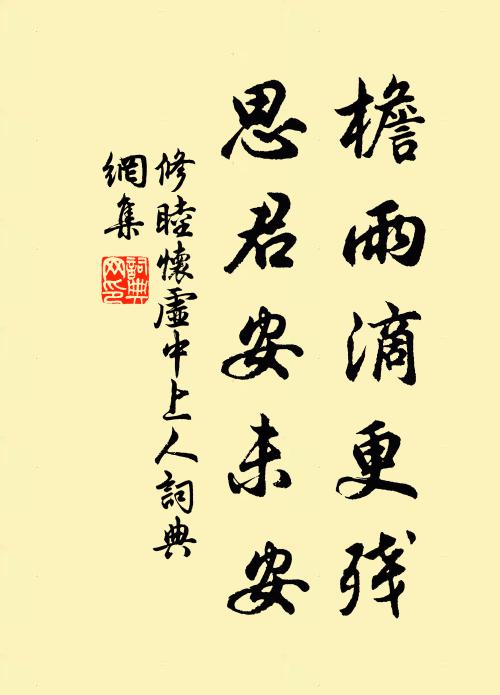 檐雨滴更残
思君安未安
修睦懷虛中上人詞典
網集
詞典
网印